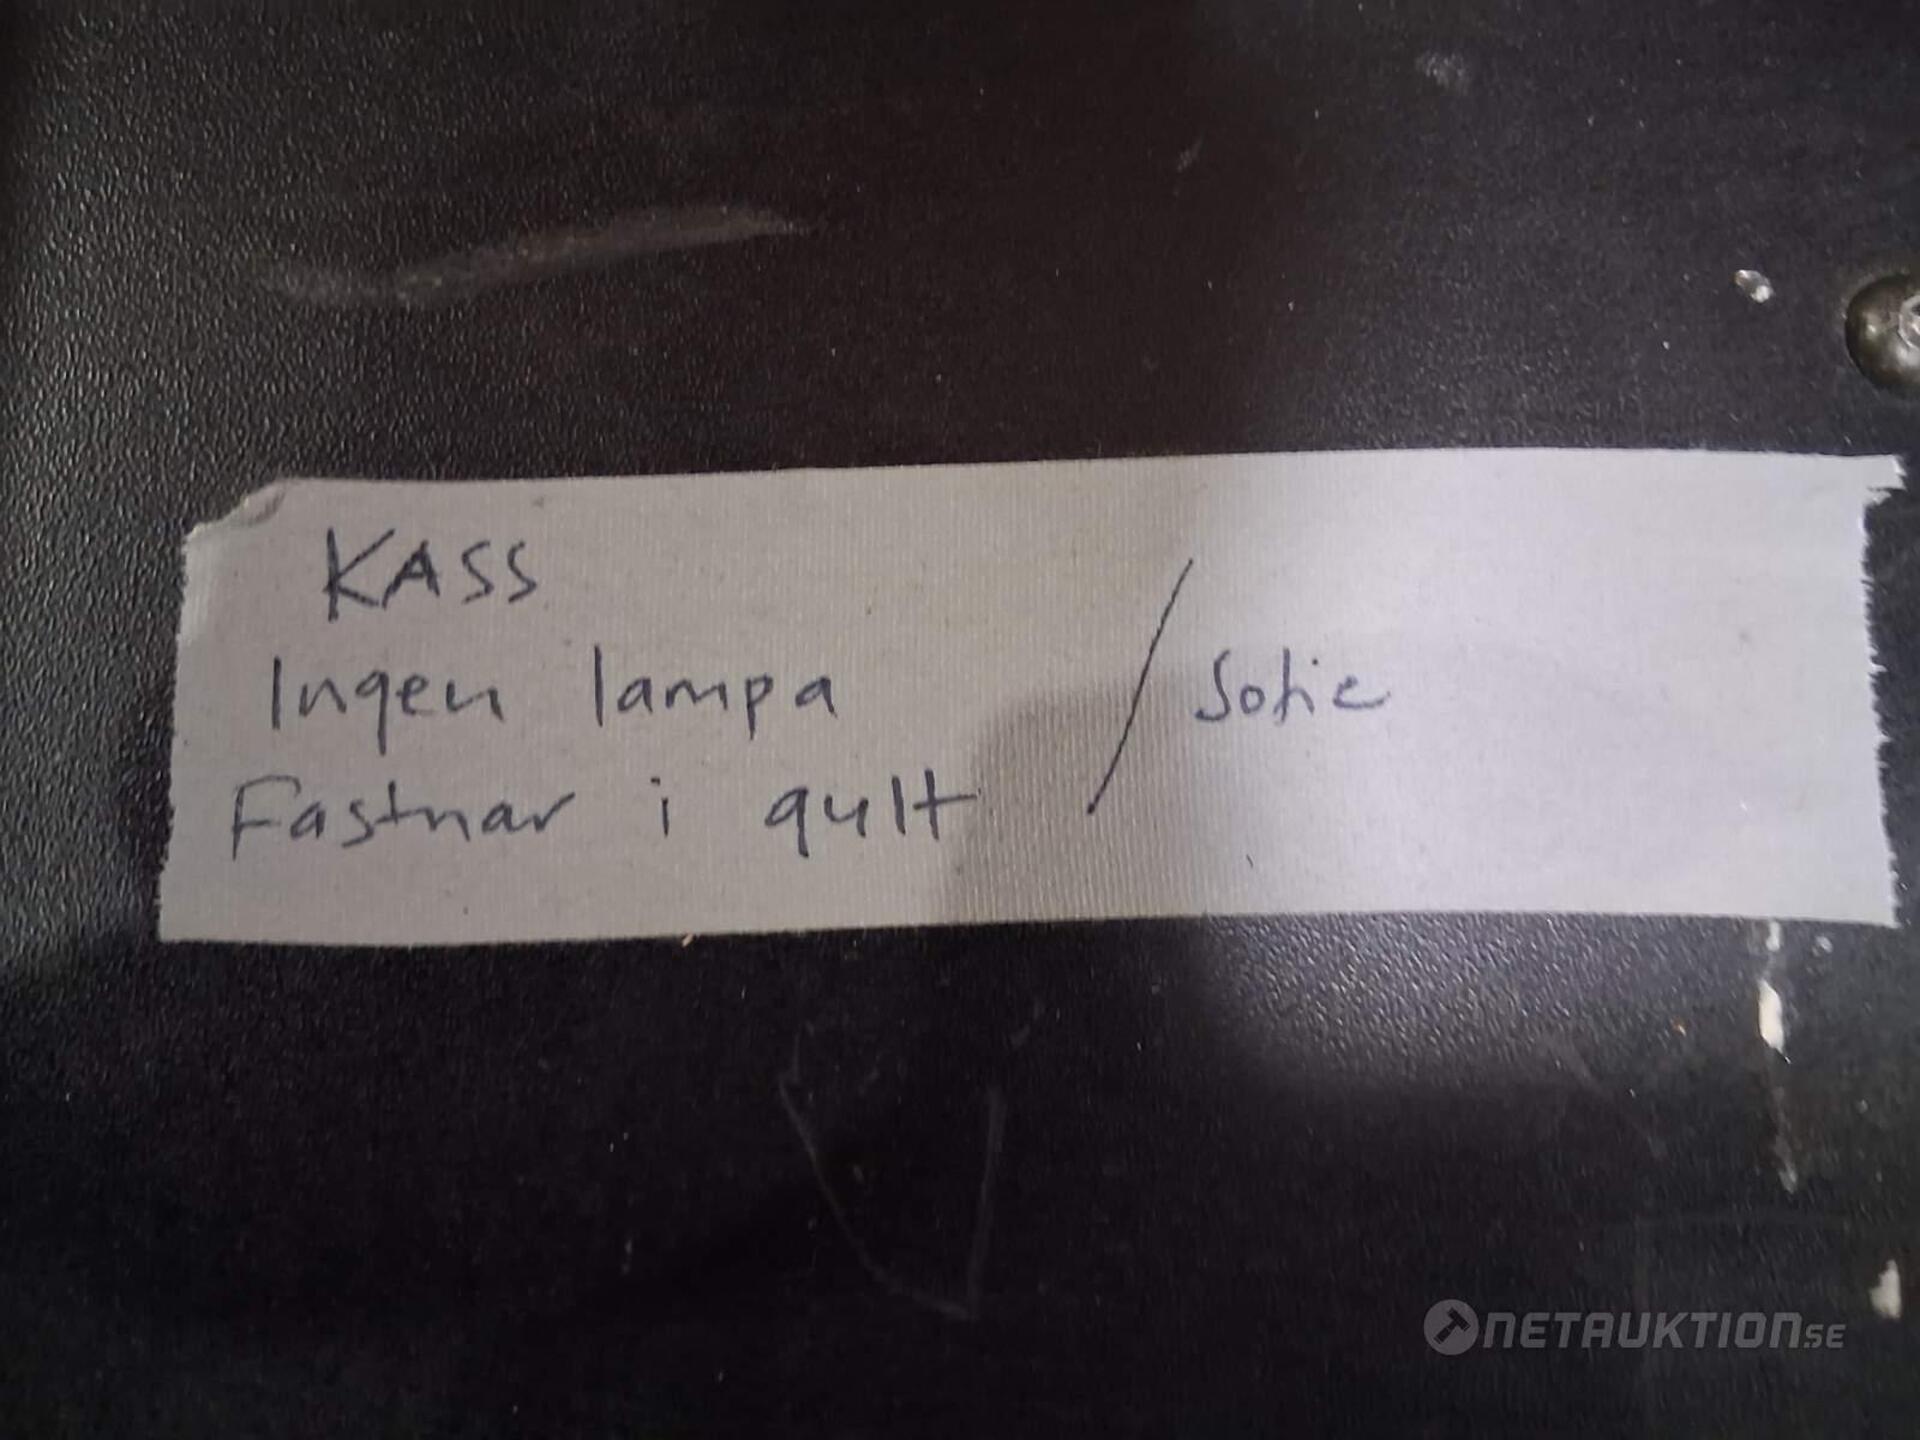 KASS
Ingen lampa
Fastnar i gult
/ Sofie
NETAUKTION.SE